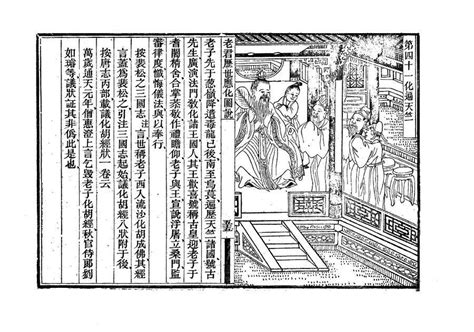 第四十一化遍天竺
老君歷世應化圖說
老子于葱嶺降遣毒龍已後南至烏萇遍歷天竺諸國號古
先生廣演法門敎化諸王國人其王歡喜號稱古皇迎老子于
耆闍精舍合掌恭敬作禮瞻仰老子與王宣說浮屠立桑門監
審律度懺悔儀法與以奉行
按裴松之三國志注言世稱老子西入流沙化胡成佛其經
言蓋爲裴松之引注三國志起始議化胡經八狀附于後
按唐志丙部載議化胡經狀一卷云
萬歲通天元年僧惠澄上言乞毀老子化胡經秋官侍郎劉
如璿等議狀証其非僞此是也